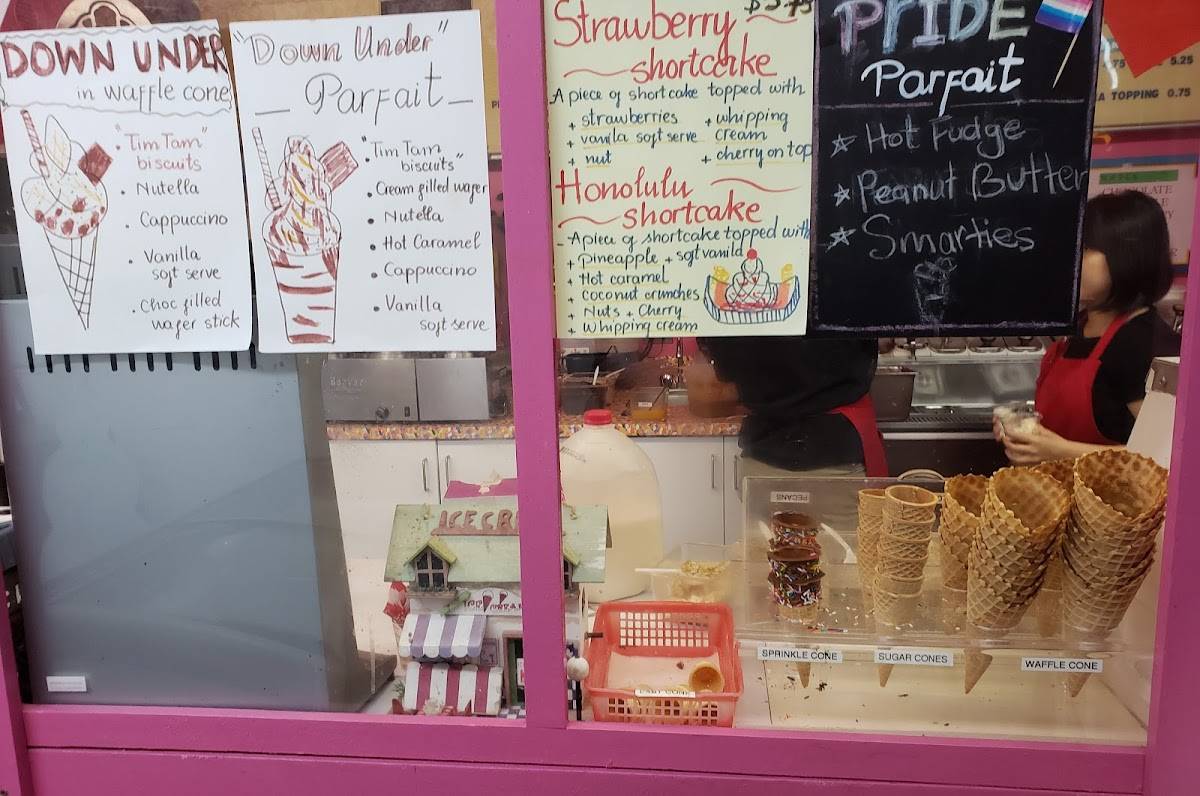 DOWN UNDER
in waffle cone
"Tim Tam"
biscuits
• Nutella
• Cappuccino
• Vanilla
soft serve
• Choc filled
wafer stick
"Down Under"
Parfait
• "Tim Tam
biscuits"
• Cream filled wafer
• Nutella
• Hot Caramel
• Cappuccino
• Vanilla
soft serve
Strawberry $5.75
shortcake
A piece of shortcake topped with
+ strawberries
+ vanila soft serve
+ nut
+ whipping
cream
+ cherry on top
Honolulu
shortcake
- A piece of shortcake topped with
+ pineapple + soft vanila
+ Hot caramel
+ coconut crunches
+ Nuts + Cherry
+ whipping cream
PRIDE
Parfait
Hot Fudge
Peanut Butter
Smarties
5.25
A TOPPING 0.75
CHOCOLATE
ICE CR
PECANS
BABY CONE
SPRINKLE CONE
SUGAR CONES
WAFFLE CONE